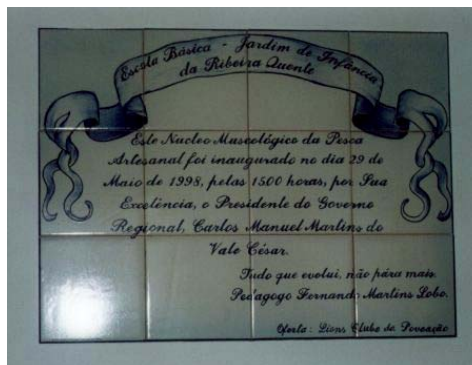 Escola Básica - Jardim de Infância
da Ribeira Quente
Este Nucleo Museológico da Pesca
Artesanal foi inaugurado no dia 29 de
Maio de 1998, pelas 1500 horas, por Sua
Excelência, o Presidente do Governo
Regional, Carlos Manuel Martins do
Vale César.
Tudo que evolui, não pára mais.
Pedagogo Fernando Martins Lobo.
Oferta: Lions Clube da Povoação